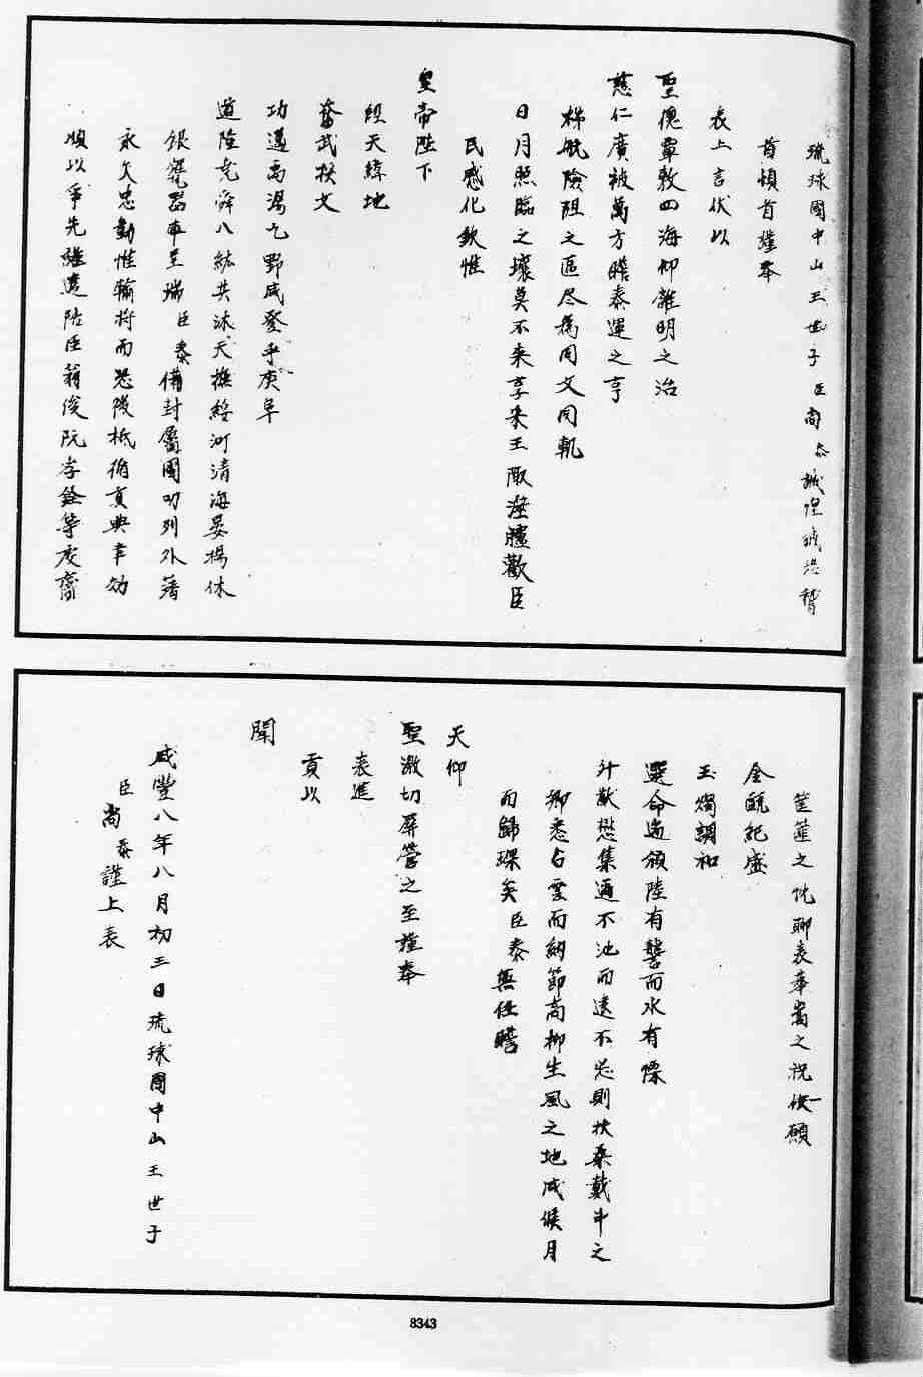 琉球國中山王世子臣尚泰誠惶誠恐稽
首頓首謹奉
表上言伏以
聖德覃敷四海仰離明之治
慈仁廣被萬方瞻泰運之亨
梯航險阻之區尽為同文同軌
日月照臨之壤莫不来享来王陬澨臚歡臣
民感化欽惟
皇帝陛下
經天緯地
奮武揆文
功邁禹湯九野咸登乎庶阜
道隆堯舜八紘共沐夫撫綏河清海晏揚休
銀甕器車呈瑞臣泰備封屬國叨列外藩
永矢忠勤惟輸將而恐後祗循貢典聿効
順以爭先雖遣陪臣翁俊阮孝銓等虔齎
筐篚之忱聊表奉嵩之祝伏願
金甌紀盛
玉燭調和
選命遙頒陸有讋而水有慄
斗猷懋集邇不泄而遠不忘則扶桑戴斗之
鄉悉占雲而納節高柳生風之地咸候月
而歸琛矣臣泰無任瞻
天仰
聖激切屏營之至謹奉
表進
貢以
聞
咸豐八年八月初三日琉球國中山王世子
臣尚泰謹上表
8343